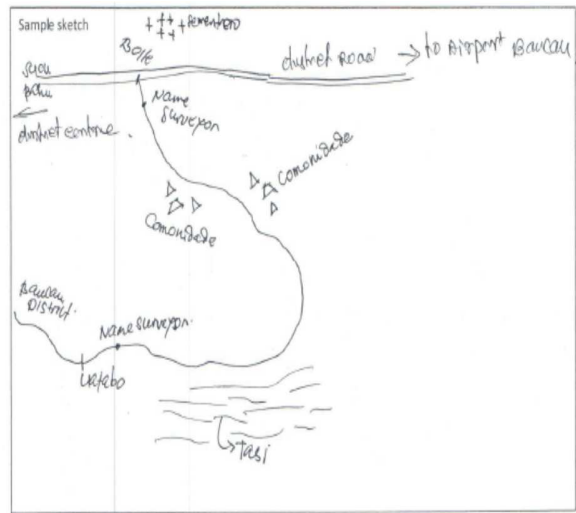 Sample sketch
Bolk
district Road → to Airport Baucau
district centre.
Name
Surveyor
Comonidade
Comonidade
Baucau
District.
Name Surveyor.
Watabo
Tasi